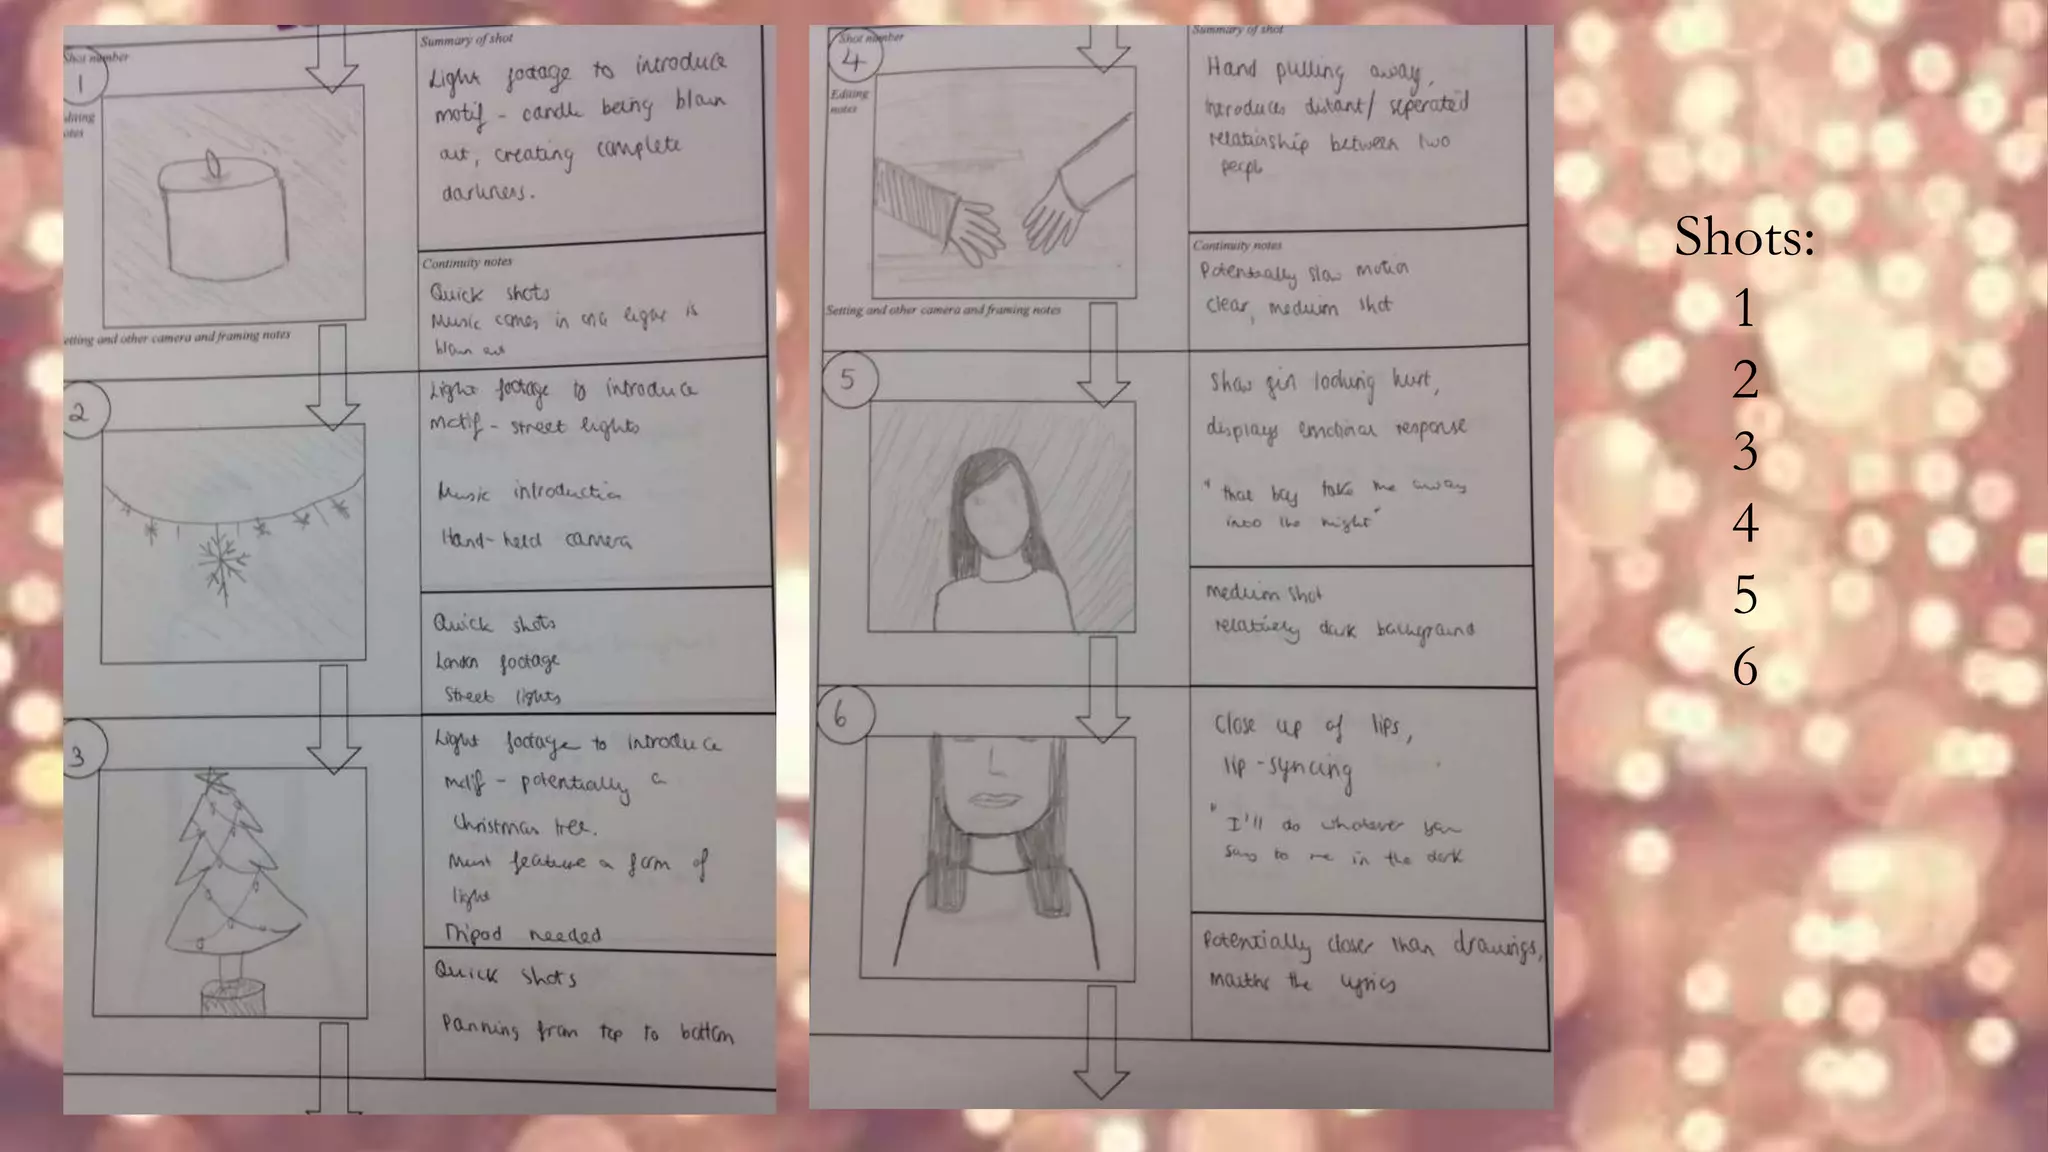 Shot number
1
Summary of shot
Light footage to introduce
motif - candle being blown
out, creating complete
darkness.
diting
otes
Continuity notes
Quick shots
Music comes in once light is
blown out
etting and other camera and framing notes
2
Light footage to introduce
motif - street lights
Music introduction
Hand-held camera
Quick shots
London footage
Street lights
3
Light footage to introduce
motif - potentially a
Christmas tree.
Must feature a form of
light
Tripod needed
Quick shots
Panning from top to bottom
Shot number
4
Summary of shot
Hand pulling away,
introduces distant/ seperated
relationship between two
people
Editing
notes
Continuity notes
Potentially slow motion
clear, medium shot
Setting and other camera and framing notes
5
Show girl looking hurt,
displays emotional response
"that boy take me away
into the night"
medium shot
relatively dark background
6
Close up of lips,
lip-syncing
"I'll do whatever you
say to me in the dark
Potentially closer than drawings,
the lyrics
Shots:
1
2
3
4
5
6